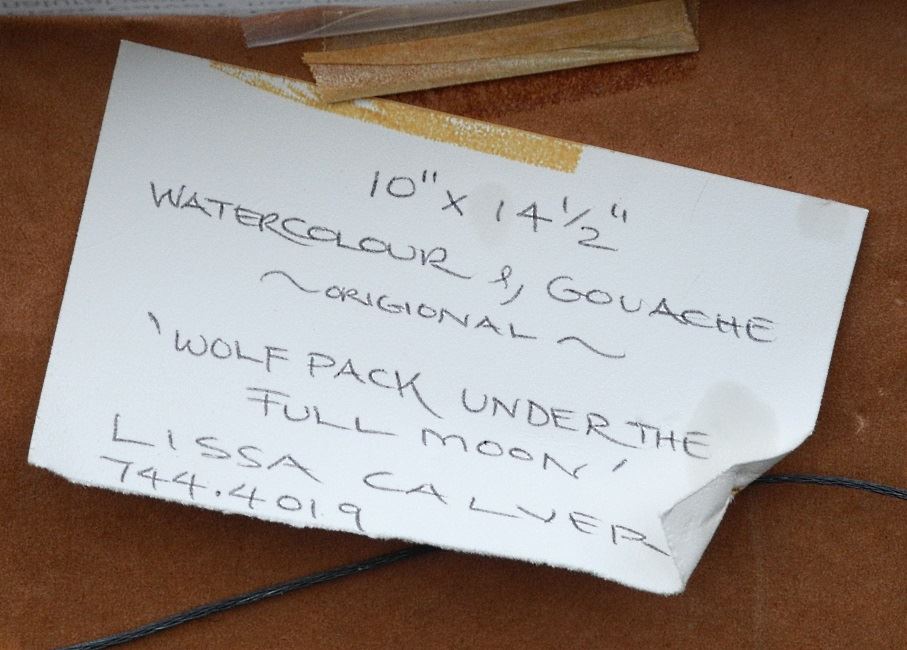 10" x 14 1/2"
WATERCOLOUR & GOUACHE
~ ORIGIONAL ~
'WOLF PACK UNDER THE
FULL MOON'
LISSA CALVER
744.4019